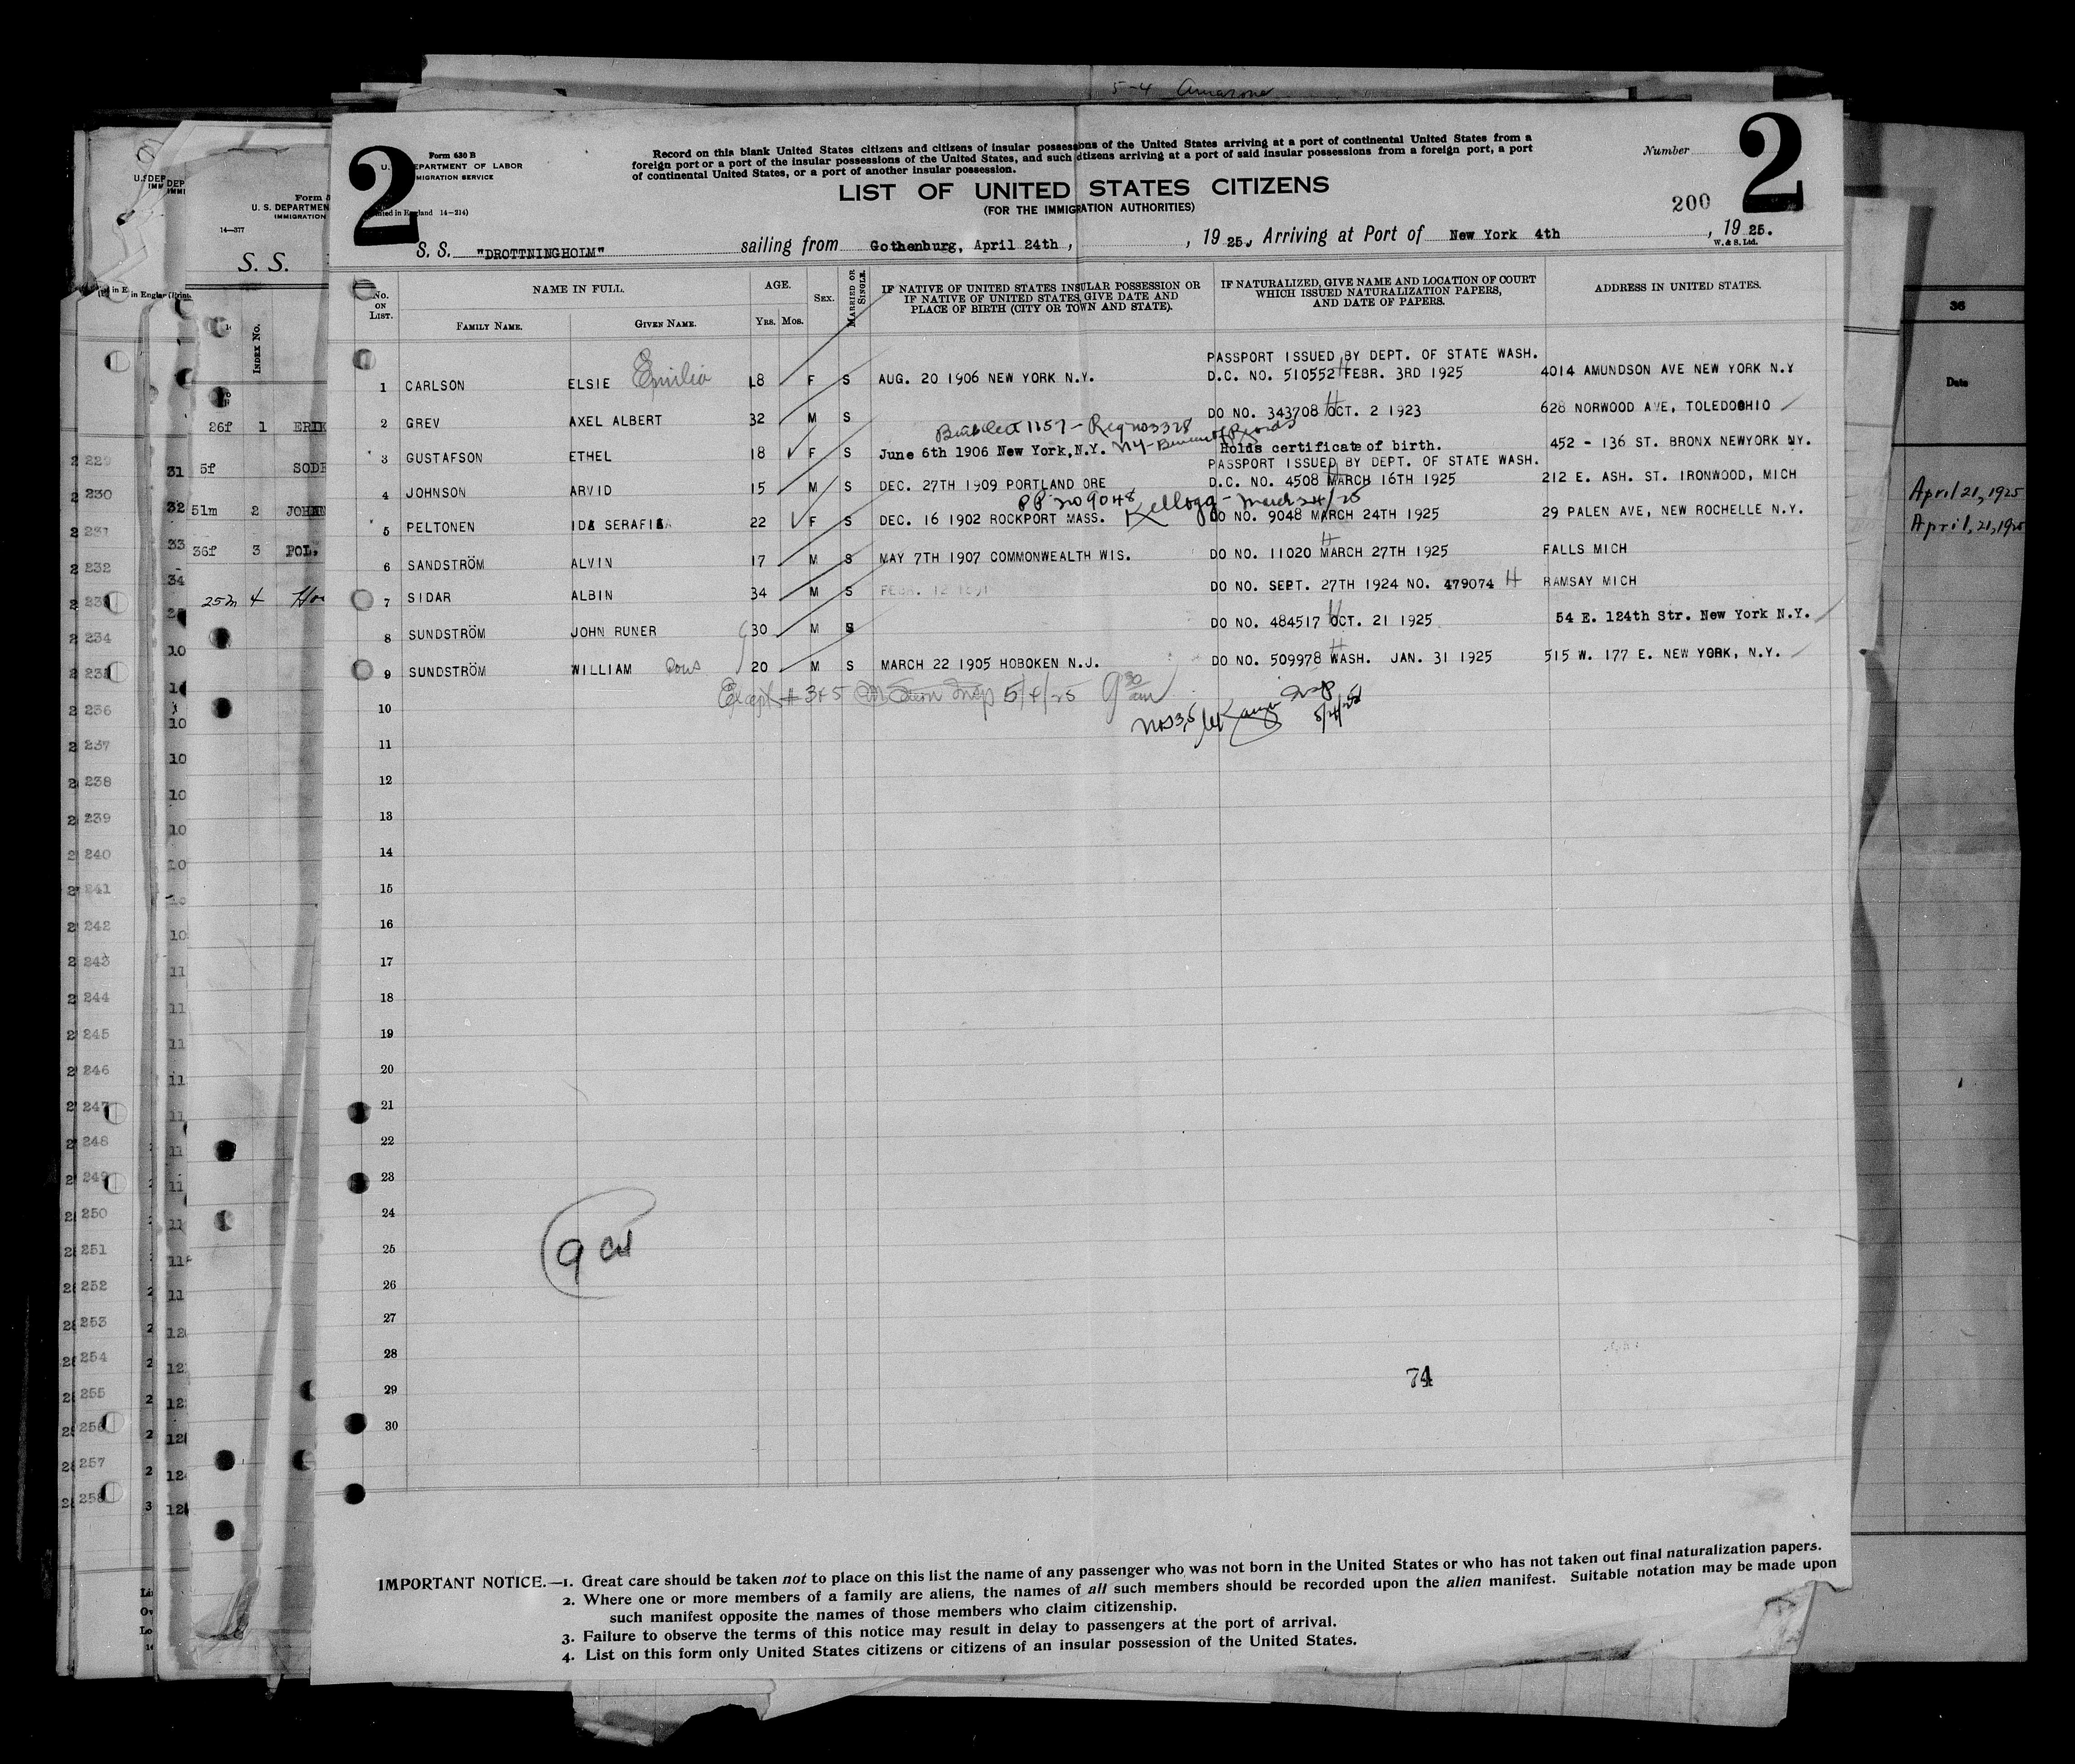 5-4
2
2
Form 630 B
U. S. DEPARTMENT OF LABOR
IMMIGRATION SERVICE
(Printed in England 14-214)
Record on this blank United States citizens and citizens of insular possessions of the United States arriving at a port of continental United States from a
foreign port or a port of the insular possessions of the United States, and such citizens arriving at a port of said insular possessions from a foreign port, a port
of continental United States, or a port of another insular possession.
Number
LIST OF UNITED STATES CITIZENS
(FOR THE IMMIGRATION AUTHORITIES)
200
S. S. "DROTTNINGHOLM" sailing from Gothenburg, April 24th, , 1925. Arriving at Port of New York 4th , 1925.
W. & S. Ltd.
No. ON LIST.
NAME IN FULL.
FAMILY NAME. GIVEN NAME.
AGE.
YRS. MOS.
SEX.
MARRIED OR SINGLE.
IF NATIVE OF UNITED STATES INSULAR POSSESSION OR
IF NATIVE OF UNITED STATES, GIVE DATE AND
PLACE OF BIRTH (CITY OR TOWN AND STATE).
IF NATURALIZED, GIVE NAME AND LOCATION OF COURT
WHICH ISSUED NATURALIZATION PAPERS,
AND DATE OF PAPERS.
ADDRESS IN UNITED STATES.
PASSPORT ISSUED BY DEPT. OF STATE WASH.
1 CARLSON ELSIE Emilia 18 F S AUG. 20 1906 NEW YORK N.Y. D.C. NO. 510552 FEBR. 3RD 1925 4014 AMUNDSON AVE NEW YORK N.Y
2 GREV AXEL ALBERT 32 M S DO NO. 343708 OCT. 2 1923 628 NORWOOD AVE, TOLEDO OHIO
1157 - Reg no 3328
3 GUSTAFSON ETHEL 18 F S June 6th 1906 New York, N.Y. NY- Bureau of Records Holds certificate of birth. 452 - 136 ST. BRONX NEWYORK NY.
PASSPORT ISSUED BY DEPT. OF STATE WASH.
4 JOHNSON ARVID 15 M S DEC. 27TH 1909 PORTLAND ORE D.C. NO. 4508 MARCH 16TH 1925 212 E. ASH. ST. IRONWOOD, MICH
PP no 9048 Kellogg - March 24/25
5 PELTONEN IDA SERAFIA 22 F S DEC. 16 1902 ROCKPORT MASS. DO NO. 9048 MARCH 24TH 1925 29 PALEN AVE, NEW ROCHELLE N.Y.
6 SANDSTRÖM ALVIN 17 M S MAY 7TH 1907 COMMONWEALTH WIS. DO NO. 11020 MARCH 27TH 1925 FALLS MICH
7 SIDAR ALBIN 34 M S DO NO. SEPT. 27TH 1924 NO. 479074 H RAMSAY MICH
8 SUNDSTRÖM JOHN RUNER 30 M S DO NO. 484517 OCT. 21 1925 54 E. 124th Str. New York N.Y.
9 SUNDSTRÖM WILLIAM 20 M S MARCH 22 1905 HOBOKEN N.J. DO NO. 509978 WASH. JAN. 31 1925 515 W. 177 E. NEW YORK, N.Y.
Except # 3 & 5 Insp 5/4/25 9 30 am
Nos 3, 5 Insp 5/4/25
10
11
12
13
14
15
16
17
18
19
20
21
22
23
24
25
26
27
28
29
30
9
74
IMPORTANT NOTICE.—1. Great care should be taken not to place on this list the name of any passenger who was not born in the United States or who has not taken out final naturalization papers.
2. Where one or more members of a family are aliens, the names of all such members should be recorded upon the alien manifest. Suitable notation may be made upon
such manifest opposite the names of those members who claim citizenship.
3. Failure to observe the terms of this notice may result in delay to passengers at the port of arrival.
4. List on this form only United States citizens or citizens of an insular possession of the United States.
U. S. DEPARTMEN
IMMIGRATION
14-377
S. S.
INDEX No.
26f 1 ERIK
5f SODE
51m 2
36f 3 POL,
25m 4
31
32
33
34
229
230
231
232
234
236
237
238
239
240
241
242
243
244
245
246
247
248
249
250
251
252
253
254
255
256
257
258
36
Date
April 21, 1925
April, 21, 1925